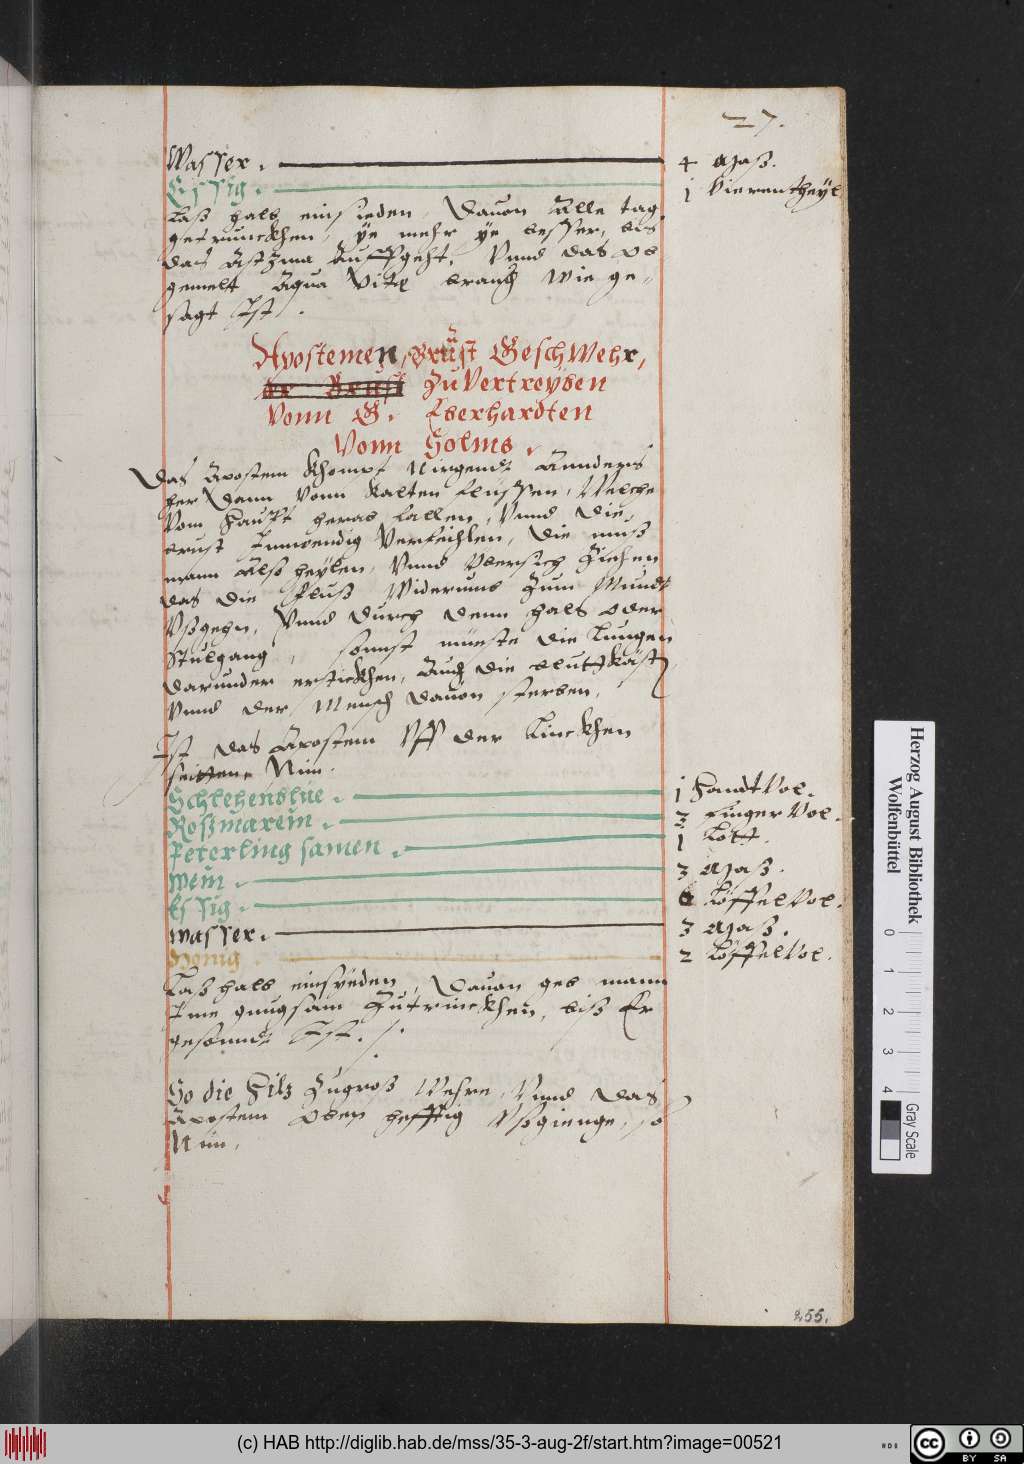 27.
Wasser. 4 Maß.
Essig. 1 Vierentheyl
Laß halb einsieden, Dauon Alle tag
getrunckhen, ye mehr ye besser, bis
das Astzma Auffgeht, Vnnd das ob
gemelt Aqua Vitę brauch wie ge-
sagt Ist.
Apostemen, Brüst GeschWehr,
der Brust ZuVertreyben
Vonn G. Eberhardten
Vonn Solms.
Das Apostem Khompt Nirgendt Annders
her Dann Vonn Kalten flüssen, Welche
Vom Haupt herab fallen, Vnnd die
brust Innwendig, die muß
mann Also heylen, Vnnd Vbersich Ziehen
das die fluß Widerumb Zum Mundt
Vßgehn, Vnnd durch denn hals oder
Stulgang, sonnst müeste die Lungen
darunder ersticken, Auch die
Vnnd der Mensch dauon sterben,
Ist das Apostem Vff der Linckhen
seitten Nim.
Schlehenblüe. 1 HandtVol.
Roßmarein. 3 fingerVol.
Peterling samen. 1 Lott.
Wein. 3 Maß.
Essig. 6 LöffelVol.
Wasser. 3 Maß.
Honig. 2 LöffelVol.
Laß halb einsyeden, Dauon geb mann
Ime gnugsam Zutrinckhen, biß Er
gesundt Ist.
So die Hitz Zugroß Were, Vnnd das
Apostem oben hefftig Vßgienge, so
Nim.
255.
Herzog August Bibliothek
Wolfenbüttel
0 1 2 3 4
Gray Scale
(c) HAB http://diglib.hab.de/mss/35-3-aug-2f/start.htm?image=00521
cc BY SA